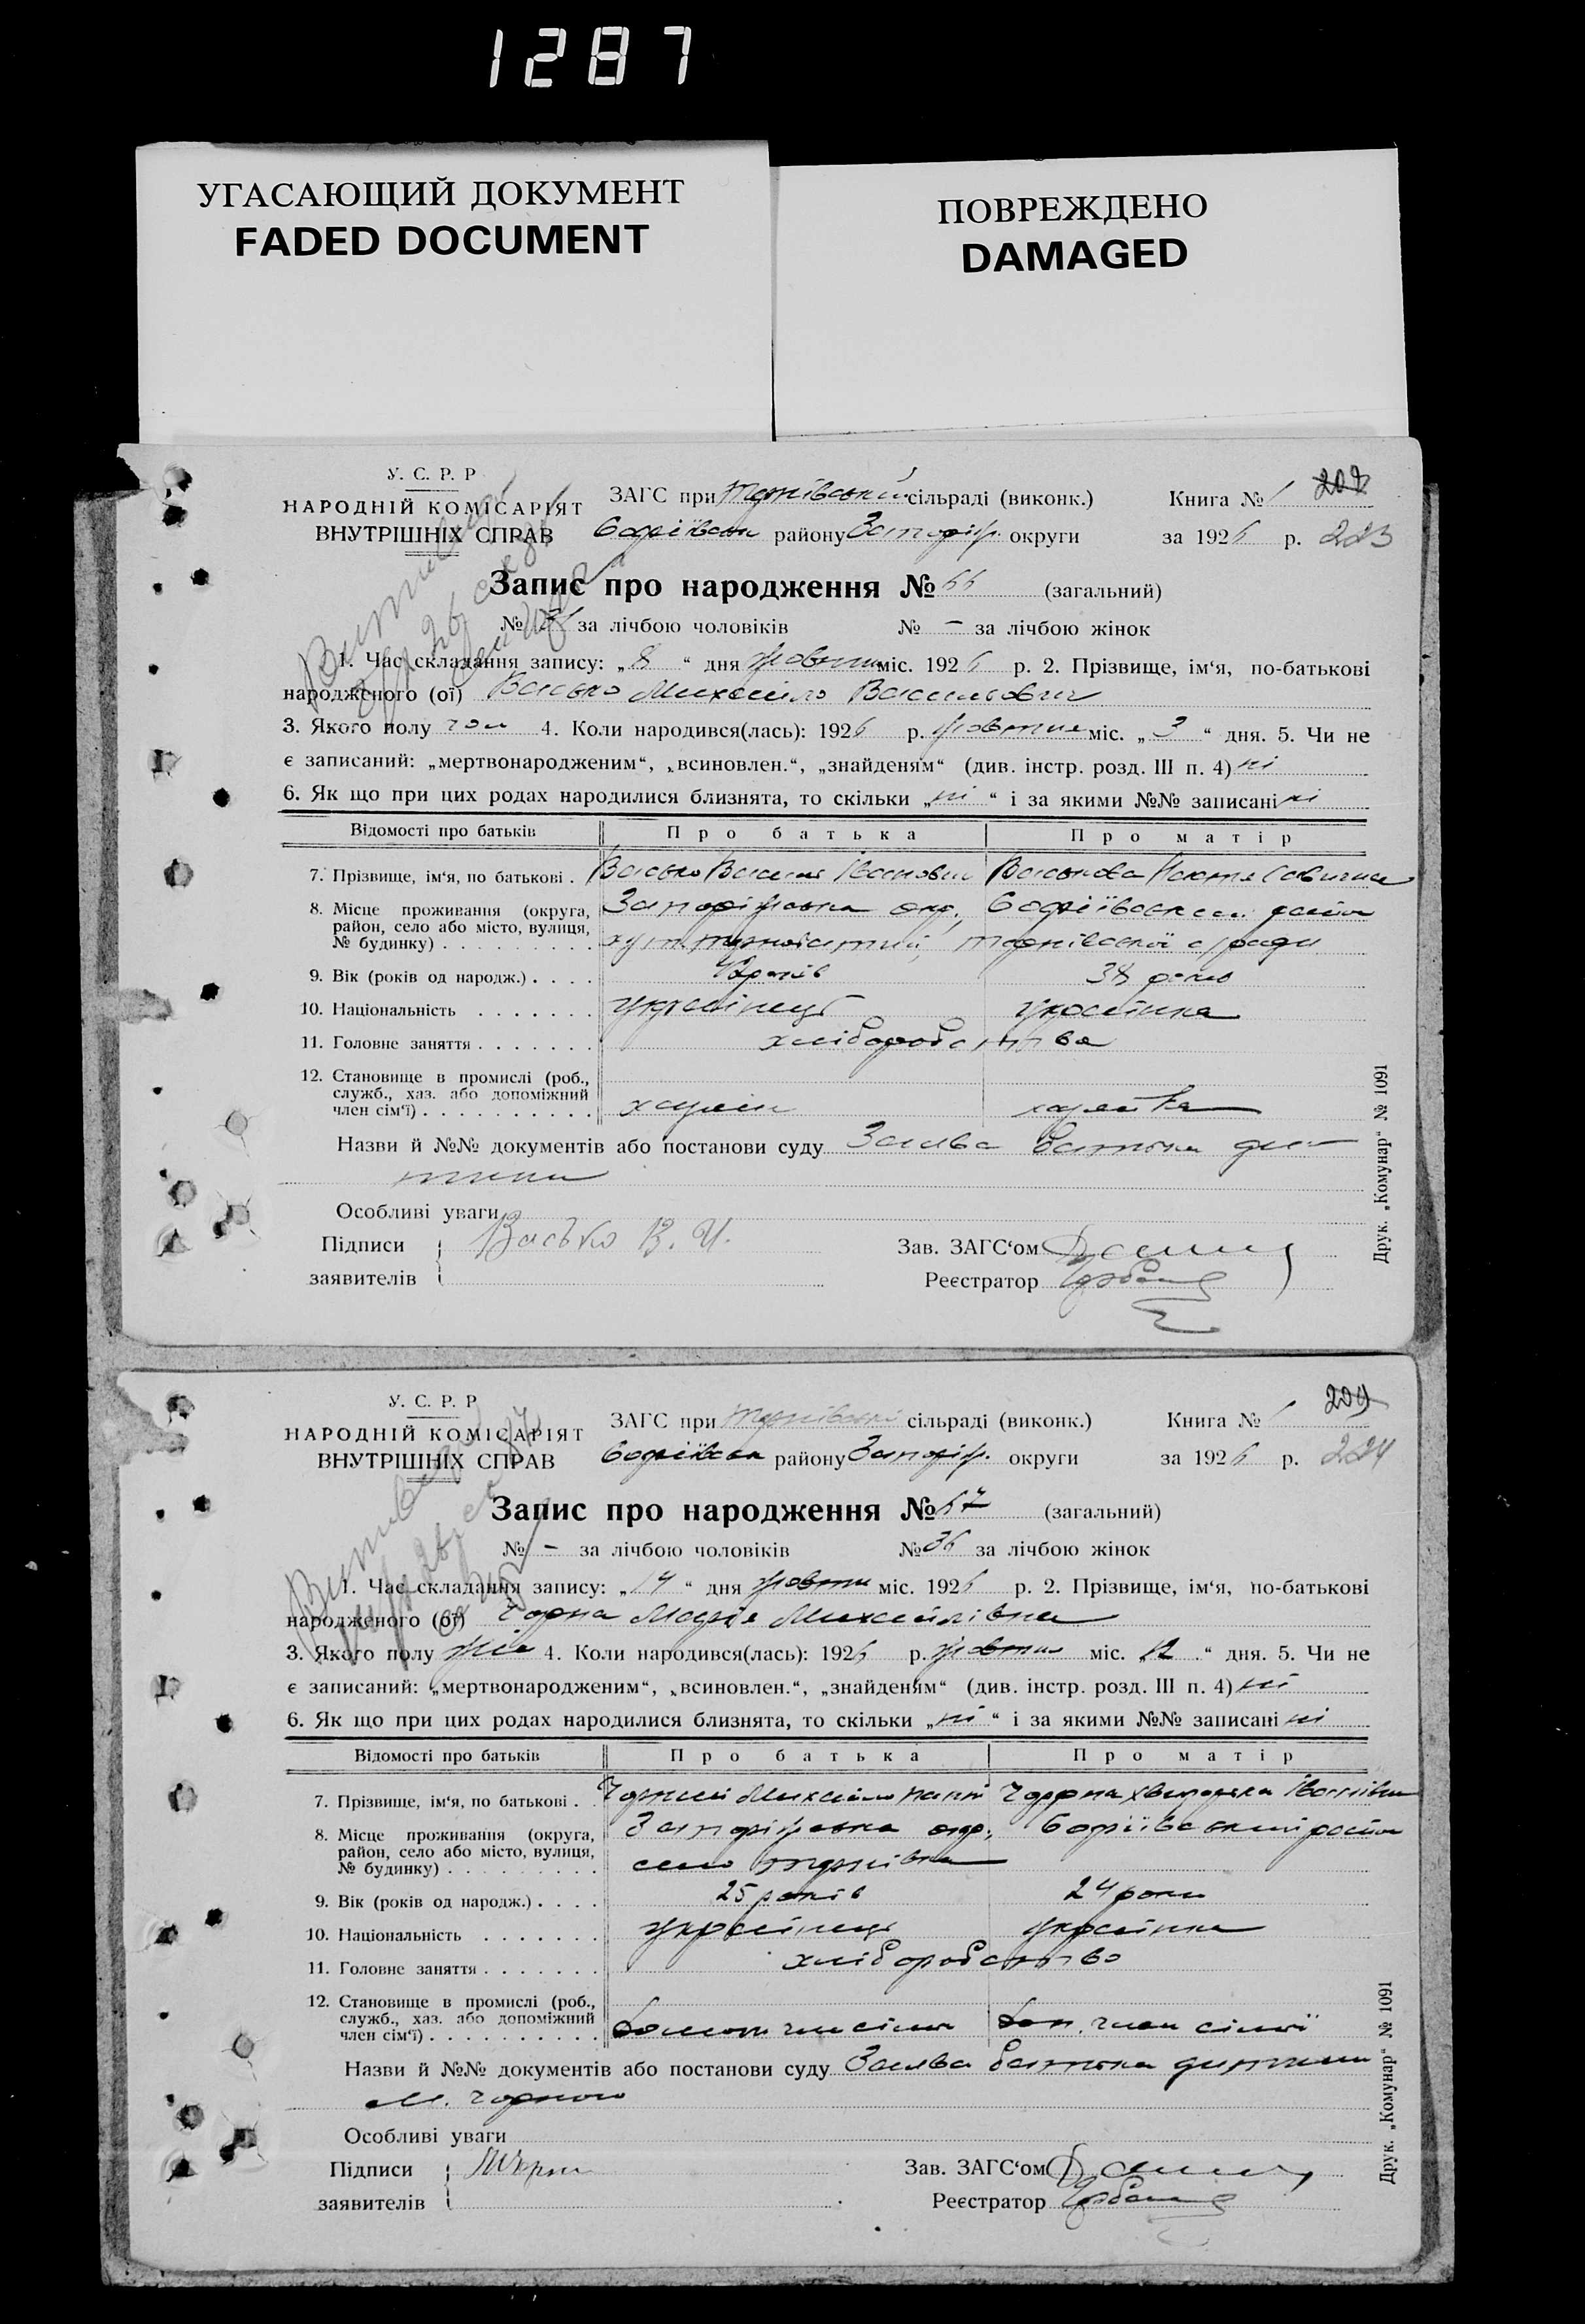 1287
УГАСАЮЩИЙ ДОКУМЕНТ
FADED DOCUMENT
ПОВРЕЖДЕНО
DAMAGED
У. С. Р. Р
НАРОДНІЙ КОМІСАРІЯТ
ВНУТРІШНІХ СПРАВ
ЗАГС при сільраді (виконк.)
району Запоріж. округи
Книга № 1
за 1926 р. 223
Запис про народження № 66 (загальний)
№ за лічбою чоловіків № – за лічбою жінок
1. Час складання запису: „8“ дня жовтня міс. 1926 р. 2. Прізвище, ім‘я, по-батькові
народженого (ої) Васько Михайло Васильович
3. Якого полу чол 4. Коли народився(лась): 1926 р. жовтня міс. „3“ дня. 5. Чи не
є записаний: „мертвонародженим“, „всиновлен.“, „знайденям“ (див. інстр. розд. III п. 4) ні
6. Як що при цих родах народилися близнята, то скільки „ні“ і за якими №№ записані ні
Відомості про батьків Про батька Про матір
7. Прізвище, ім‘я, по батькові . Васько Василь Іванович Васькова
8. Місце проживання (округа, Запоріжська окр.,
район, село або місто, вулиця,
№ будинку)
9. Вік (років од народж.) років 38 років
10. Національність українець українка
11. Головне заняття хліборобство
12. Становище в промислі (роб.,
служб., хаз. або допоміжний
член сім‘ї) хазяїн хазяйка
Назви й №№ документів або постанови суду Заява батька ди-
тини
Особливі уваги
Підписи Васько В. И.
заявителів
Зав. ЗАГС‘ом
Реєстратор
Друк. „Комунар“ № 1091
У. С. Р. Р
НАРОДНІЙ КОМІСАРІЯТ
ВНУТРІШНІХ СПРАВ
ЗАГС при сільраді (виконк.)
району Запоріж. округи
Книга № 1 209
за 1926 р. 224
Запис про народження № 67 (загальний)
№ – за лічбою чоловіків № 36 за лічбою жінок
1. Час складання запису: „14“ дня жовтн міс. 1926 р. 2. Прізвище, ім‘я, по-батькові
народженого (ої) Чорна Марія Михайлівна
3. Якого полу жін 4. Коли народився(лась): 1926 р. жовтня міс. „12“ дня. 5. Чи не
є записаний: „мертвонародженим“, „всиновлен.“, „знайденям“ (див. інстр. розд. III п. 4) ні
6. Як що при цих родах народилися близнята, то скільки „ні“ і за якими №№ записані ні
Відомості про батьків Про батька Про матір
7. Прізвище, ім‘я, по батькові . Чорний Михайло Чорна Іванівна
8. Місце проживання (округа, Запоріжська окр.,
район, село або місто, вулиця, село
№ будинку)
9. Вік (років од народж.) 25 років 24 роки
10. Національність українець українка
11. Головне заняття хліборобство
12. Становище в промислі (роб.,
служб., хаз. або допоміжний
член сім‘ї) член сімї Доп. член сімї
Назви й №№ документів або постанови суду Заява батька дитини
М. Чорного
Особливі уваги
Підписи
заявителів
Зав. ЗАГС‘ом
Реєстратор
Друк. „Комунар“ № 1091